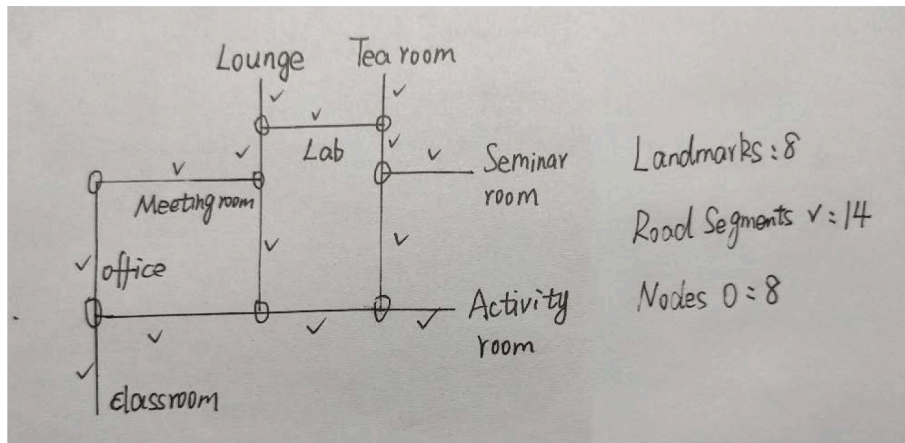 Lounge
Tea room
Lab
Seminar
room
Meeting room
office
Activity
room
classroom
Landmarks : 8
Road Segments ✓ : 14
Nodes O : 8